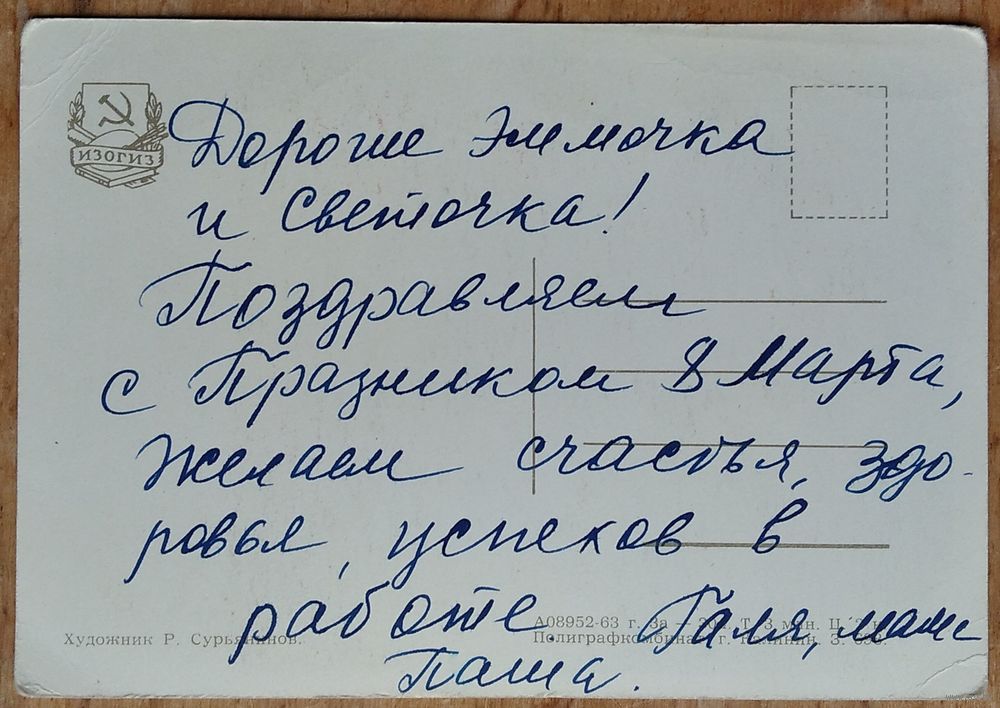 ИЗОГИЗ
Дорогие Эммочка
и Светочка!
Поздравляем
с Празником 8 Марта,
желаем счастья, здо-
ровья, успехов в
работе Галя,
Паша.
Художник Р. Сурьянинов.
А08952-63 г. За — Т. 3 млн. Ц.
Полиграфкомбинат г. Калинин. З.